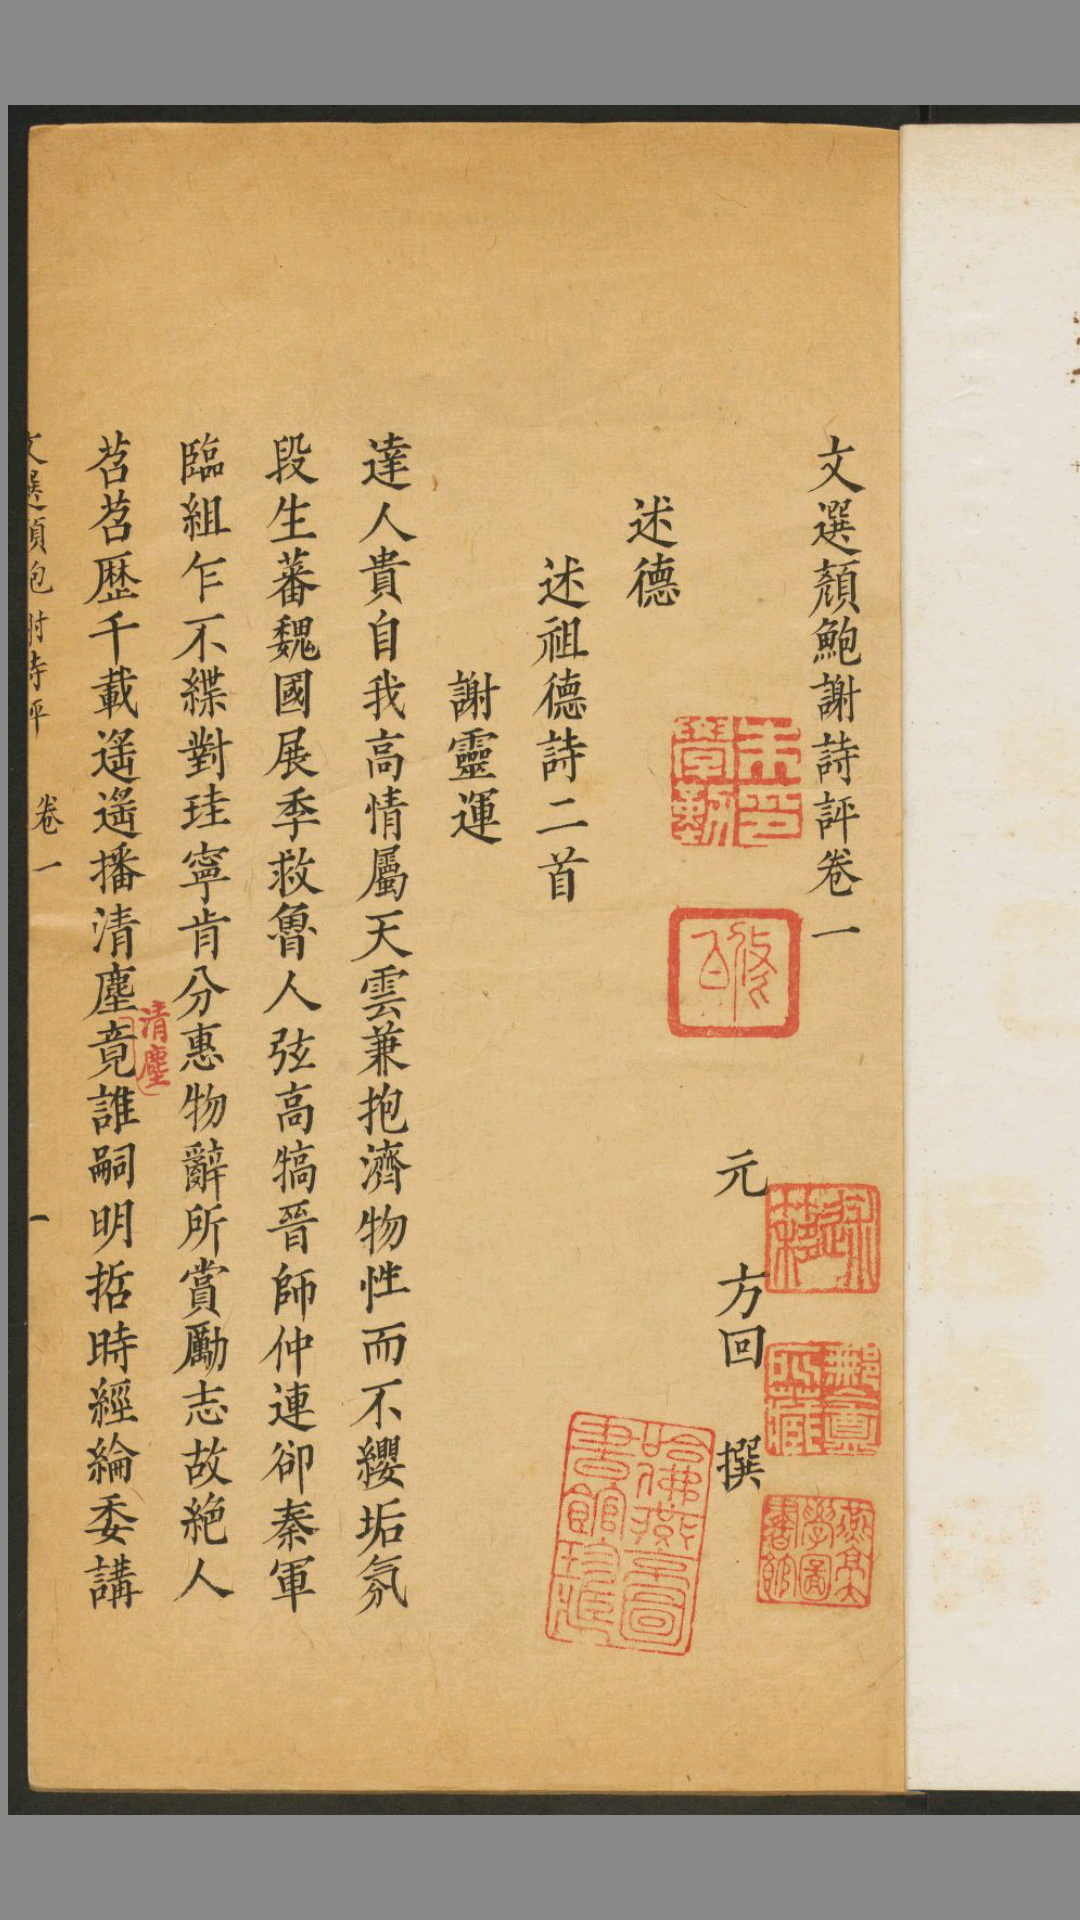 文選顏鮑謝詩評卷一
元 方回 撰
述德
述祖德詩二首
謝靈運
達人貴自我高情屬天雲兼抱濟物性而不纓垢氛
段生蕃魏國展季救魯人弦高犒晉師仲連卻秦軍
臨組乍不緤對珪寧肯分惠物辭所賞勵志故絶人
苕苕歷千載遙遙播清塵竟誰嗣明哲時經綸委講
清塵
文選顏鮑謝詩評 卷一 一
朱學勤印
修伯
徐郙
燕京大學圖書館
哈佛燕京圖書館珍藏